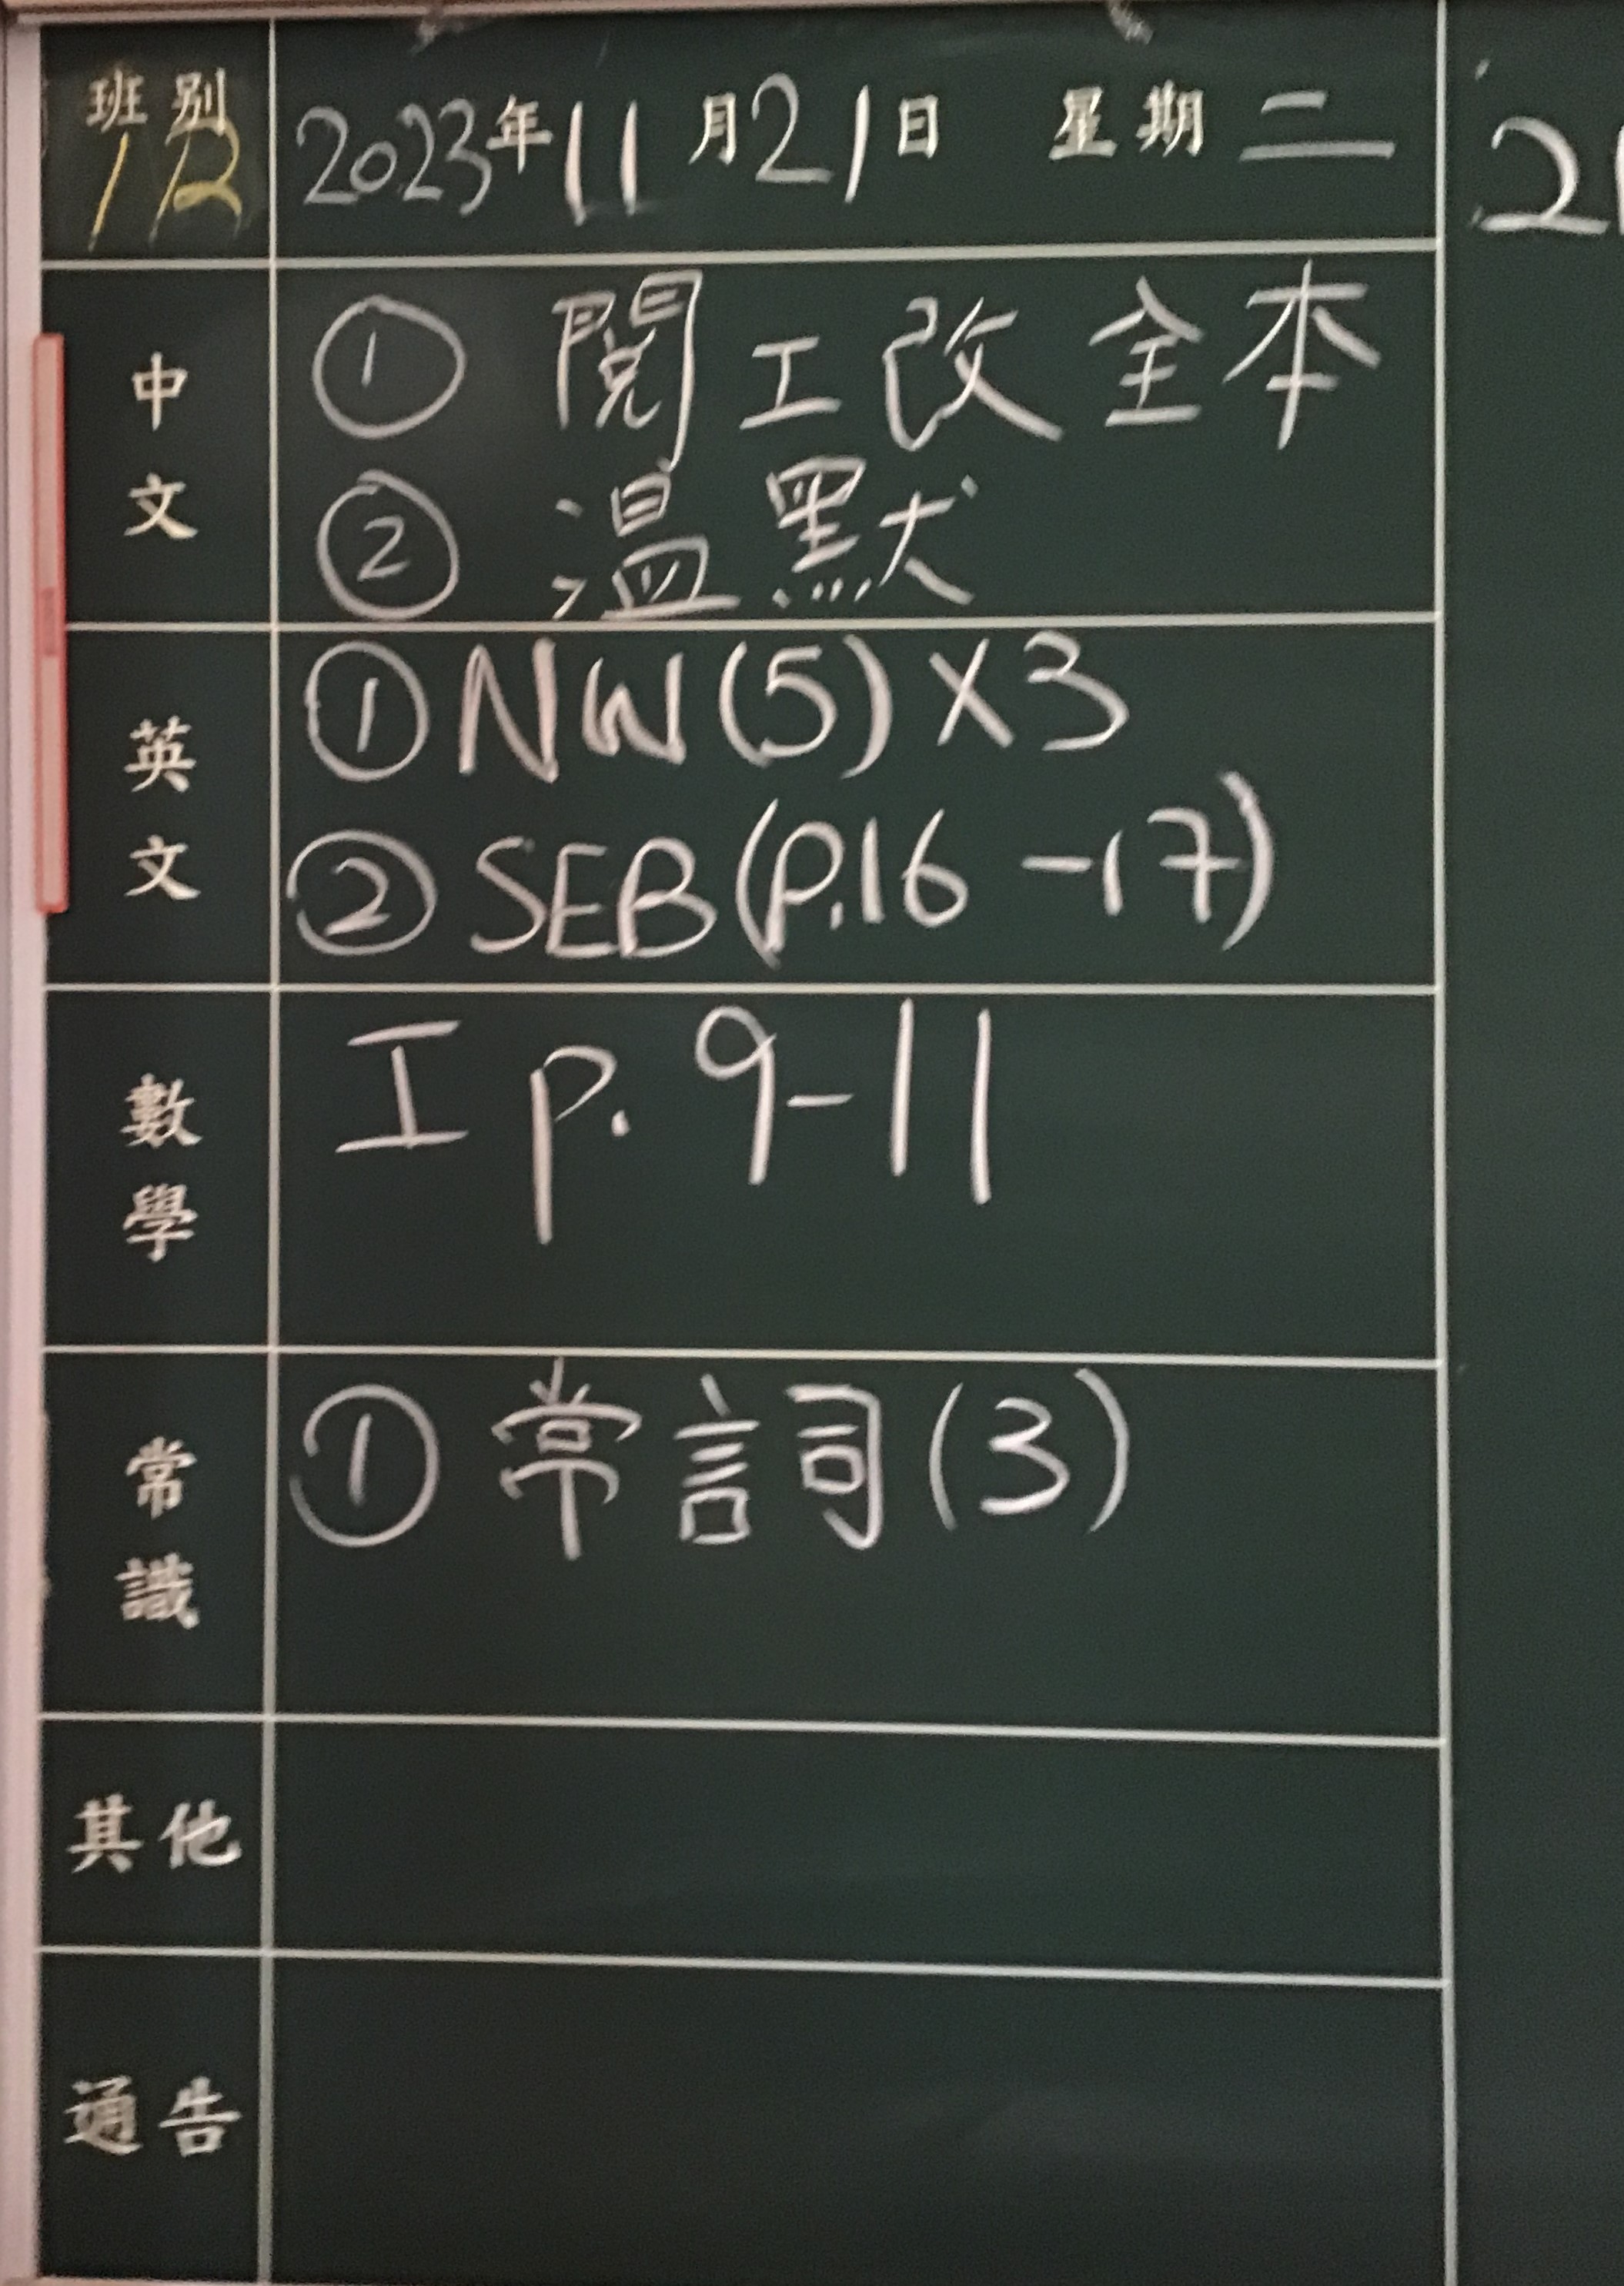 班別 2023年11月21日 星期二
中文
① 閱工改全本
② 溫默
英文
① NW(5)×3
② SEB(P.16-17)
數學
工 p. 9-11
常識
① 常言司(3)
其他
通告